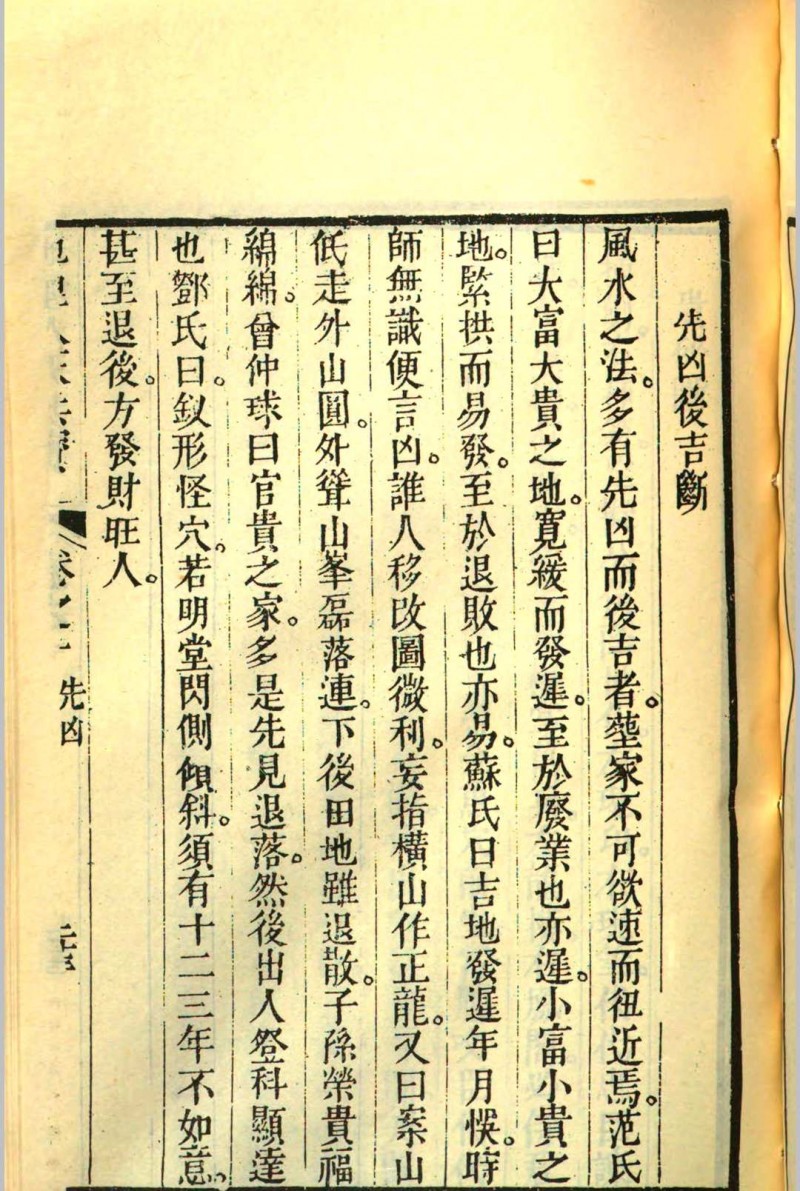 先凶後吉斷
風水之法。多有先凶而後吉者。塟家不可欲速而徂近焉。范氏
曰大富大貴之地。寬緩而發遲。至於廢業也亦遲。小富小貴之
地。緊拱而易發。至於退敗也亦易。蘇氏曰吉地發遲年月悞。時
師無識便言凶。誰人移改圖微利。妄指橫山作正龍。又曰案山
低走外山圓。外聳山峯磊落連。下後田地雖退散。子孫榮貴福
綿綿。曾仲球曰官貴之家。多是先見退落。然後出人登科顯達
也鄧氏曰。釵形怪穴。若明堂閃側傾斜。須有十二三年不如意。
甚至退後。方發財旺人。
先凶